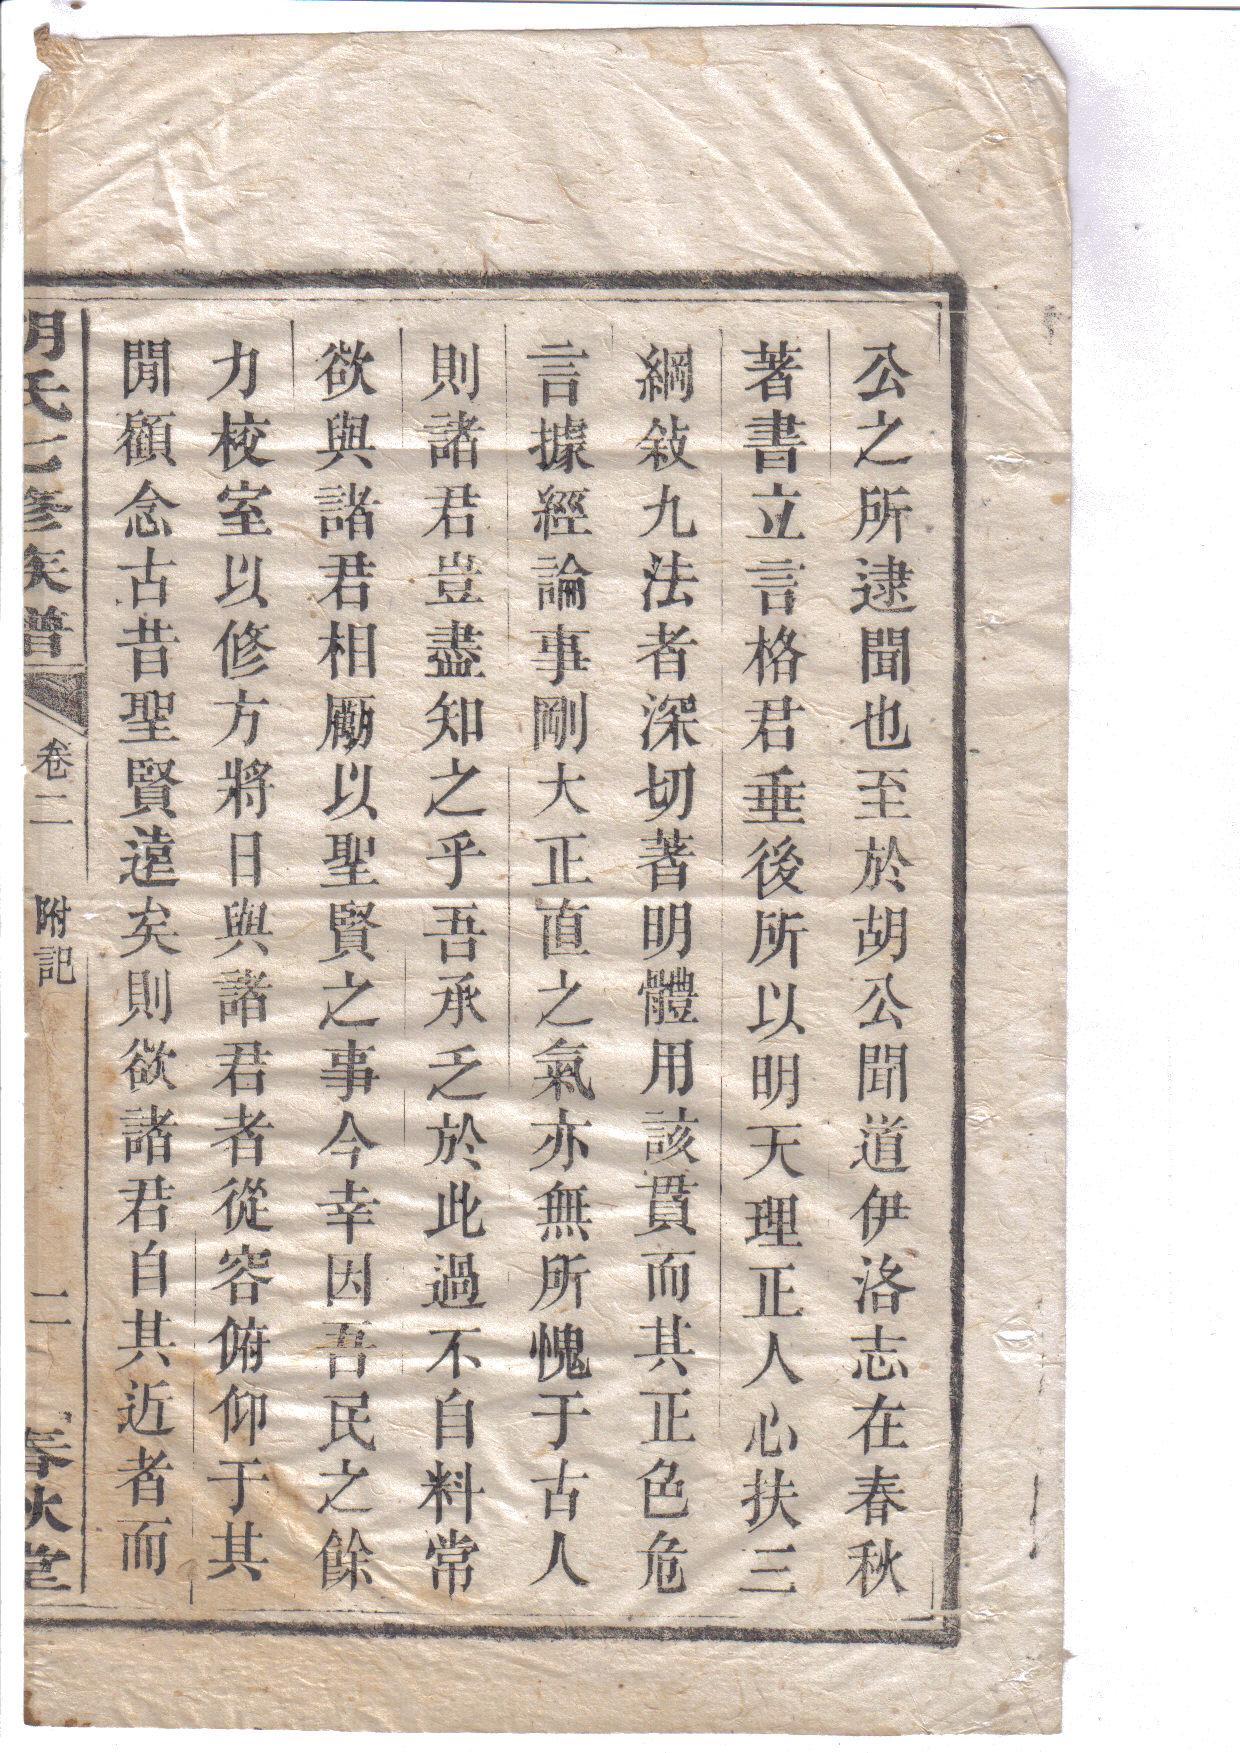 公之所逮聞也至於胡公聞道伊洛志在春秋
著書立言格君垂後所以明天理正人心扶三
綱敍九法者深切著明體用該貫而其正色危
言據經論事剛大正直之氣亦無所愧于古人
則諸君豈盡知之乎吾承乏於此過不自料常
欲與諸君相勵以聖賢之事今幸因吾民之餘
力校室以修方將日與諸君者從容俯仰于其
閒顧念古昔聖賢遠矣則欲諸君自其近者而
胡氏七修族譜
卷二
附記
二
春秋堂